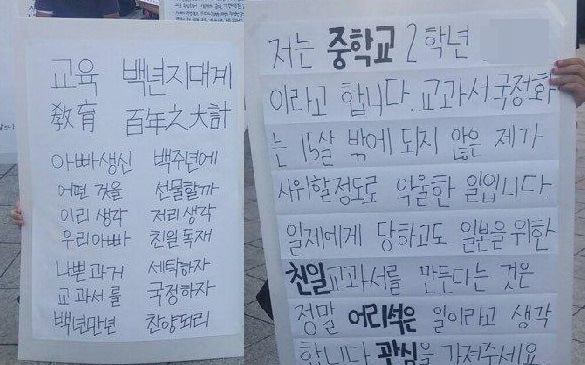 교육 백년지대계
敎育 百年之大計
아빠생신 백주년에
어떤 것을 선물할까
이리 생각 저리생각
우리아빠 친일독재
나쁜과거 세탁하자
교과서를 국정하자
백년만년 찬양되리
저는 중학교 2학년
이라고 합니다. 교과서 국정화
는 15살 밖에 되지 않은 제가
시위할정도로 억울한 일입니다
일제에게 당하고도 일본을 위한
친일교과서를 만든다는 것은
정말 어리석은 일이라고 생각
합니다 관심을 가져주세요